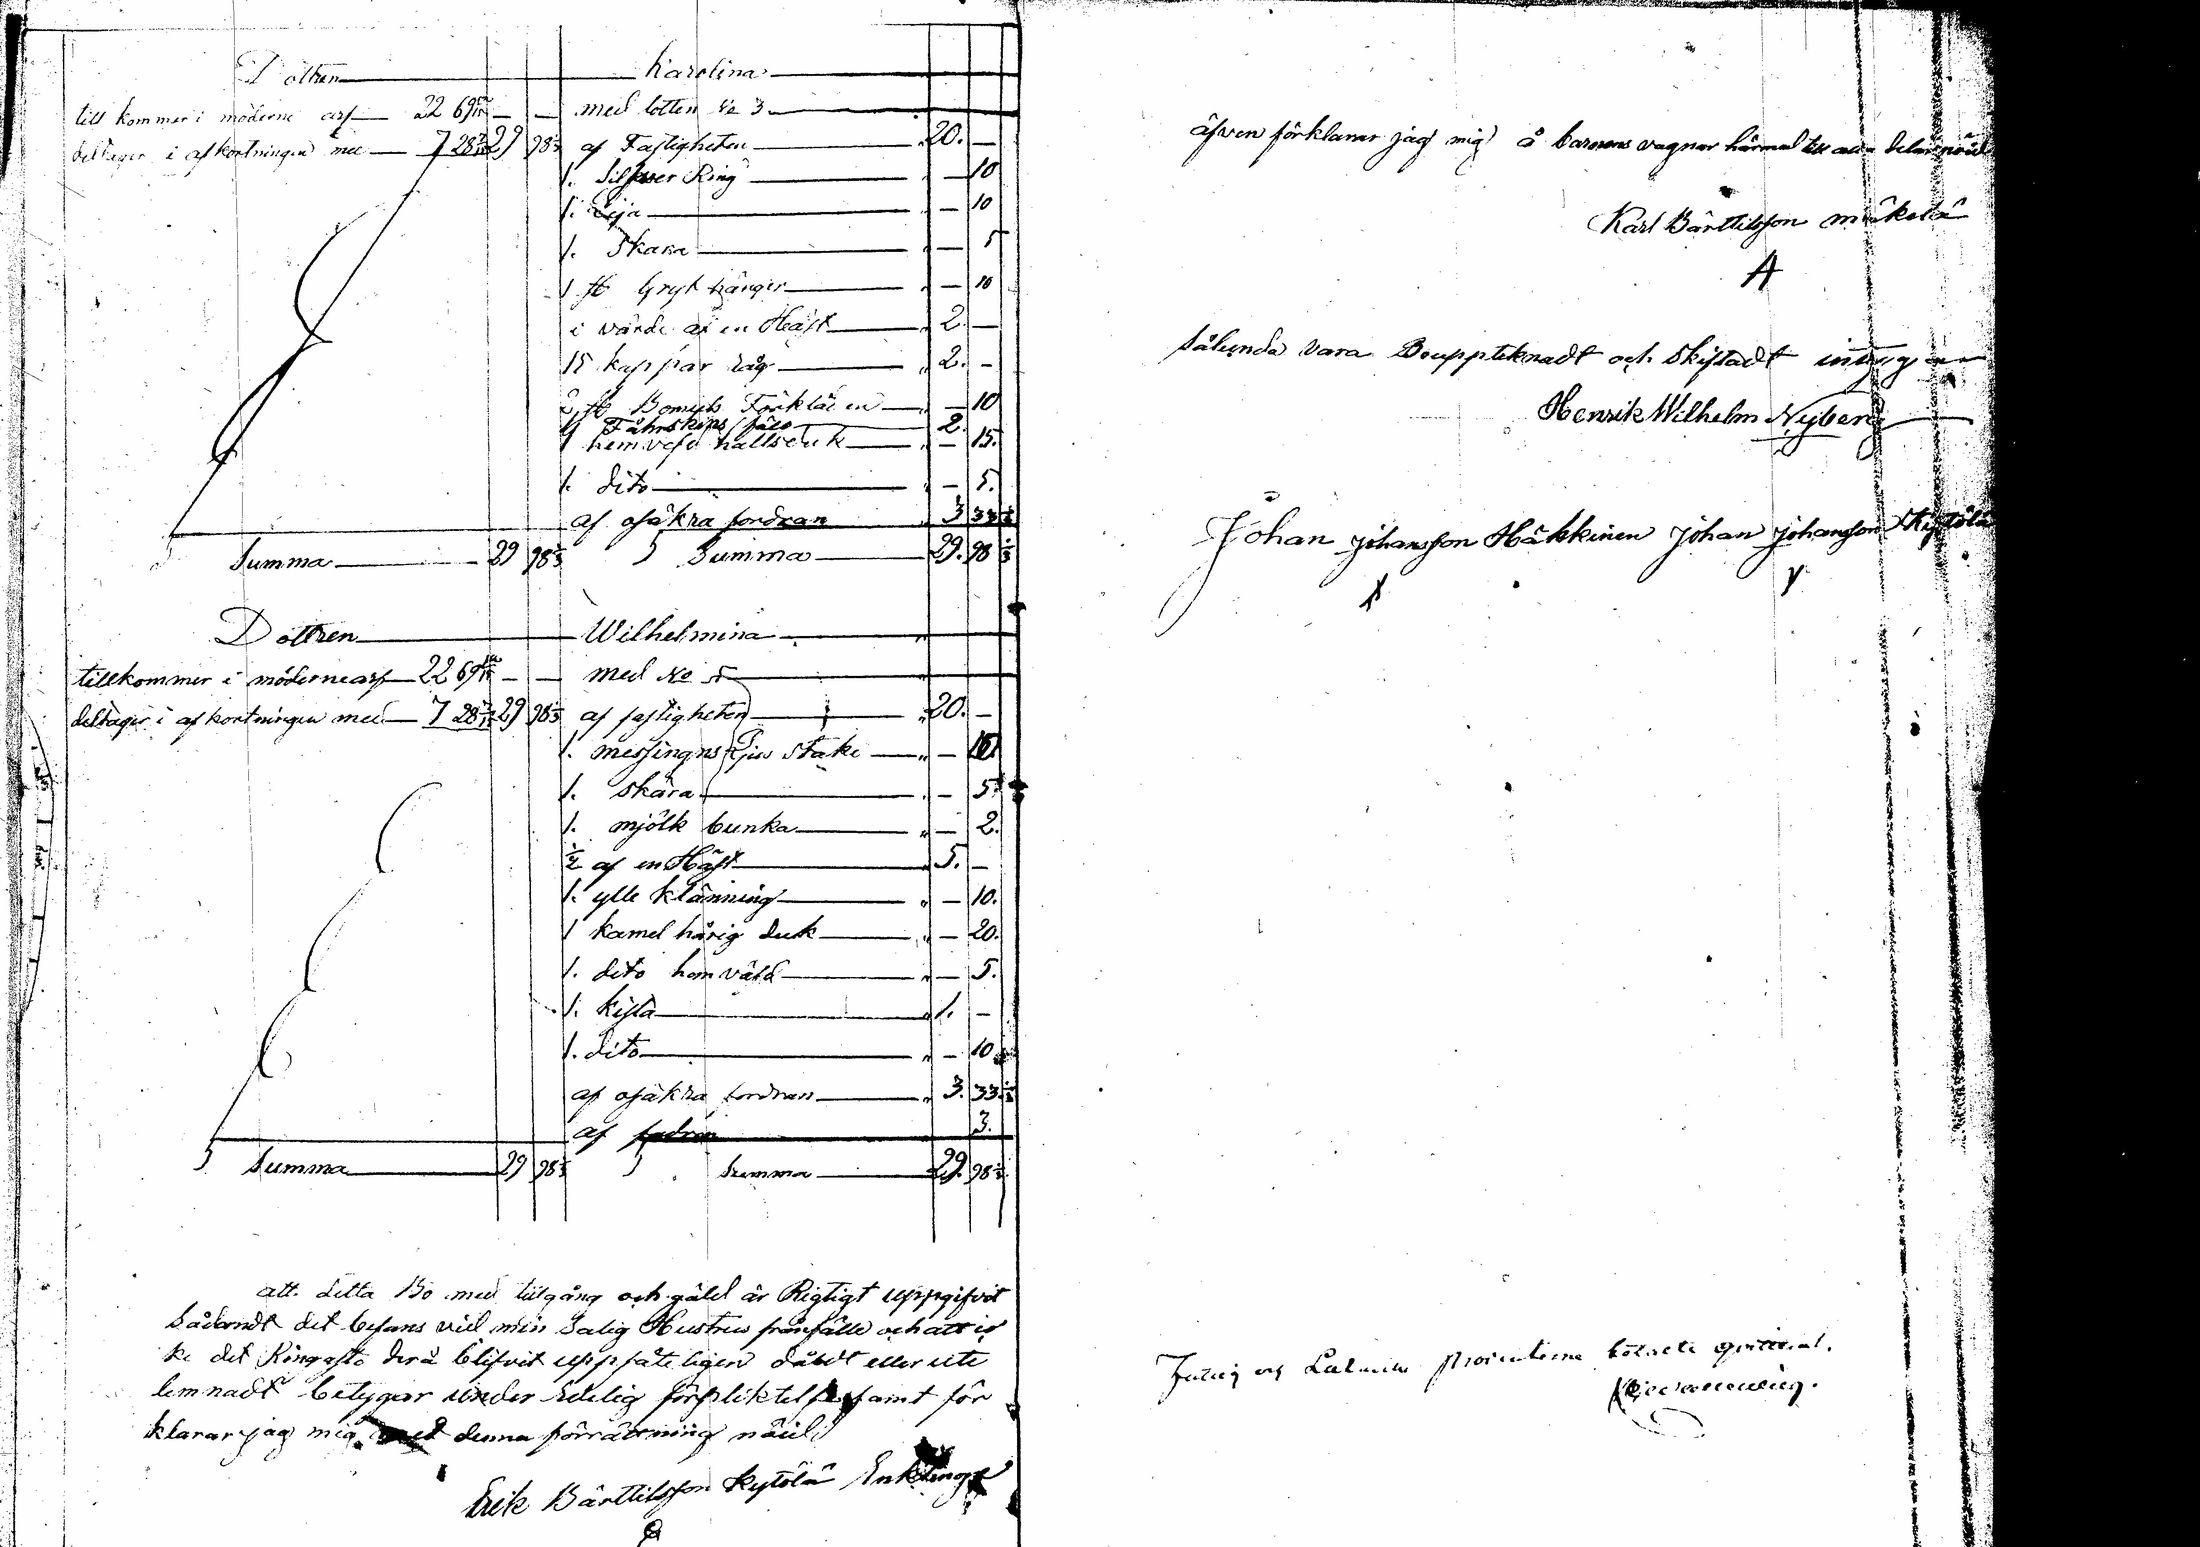 Dottren Karolina
till kommer i möderne arf 22 69 — — med lotten No 3
deltager i afkortningen med 7 28 29 98 1/3 af Fastigheten 20. —
1. Silfwer Ring — 10
1. Lija — 10
1. Skara — 5
1 st Gryt hänger — 10
i värde af en Häst 2. —
15 kappar råg 2. —
st Bomuls Förkläden — 10
Fåhrskins fäll 2.
1 hemväfd hallsduk — 15.
1. dito — 5.
af osäkra fordran 3 33 1/3
Summa 29 98 1/3 Summa 29. 98 1/3
Dottren Wilhelmina
tillkommer i möderne arf 22 69 — — med No 5
deltager i afkortningen med 7 28 29 98 1/3 af fastigheten 20. —
1. messings Ljus stake — 10
1. skära — 5.
1. mjölk bunka — 2.
1/2 af en Häst 5. —
1. ylle klänning — 10.
1 kamel hårig duk — 20.
1. dito hemväfd — 5.
1. kista 1. —
1. dito — 10
af osäkra fordran 3. 33 1/3
af fadren 3.
Summa 29 98 1/3 Summa 29. 98 1/3
att detta Bo med tillgång och gäld är Rigtigt uppgifvit
sådandt det befans vid min Salig Hustrus frånfälle och att ic
ke det Ringaste derå blifvit uppsåteligen dåldt eller ute
lemnadt betygar under Edelig förpliktelse samt för
klarar jag mig med denna förrättning nöijd
Erik Bärttilsson Kytölä Enkling
äfven förklarar jag mig å barnens vägnar härmed till alla delar nöijd
Karl Bärttilsson mäkelä
Sålunda vara Bouppteknadt och Skiftadt intygar
Henrik Wilhelm Nyberg
Johan Johansson Häkkinen Johan Johansson Kytölä